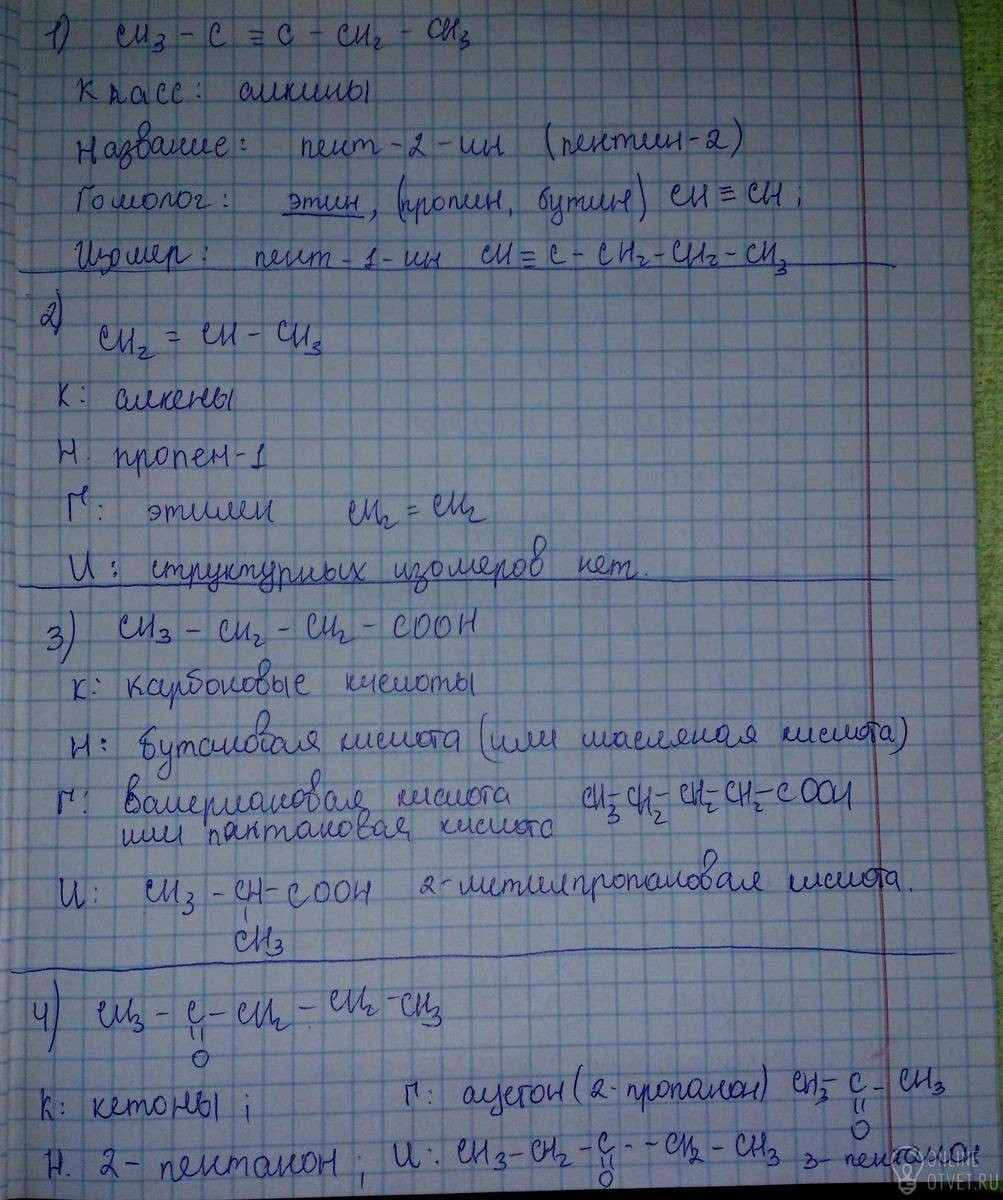 1) CH3 - C ≡ C - CH2 - CH3
Класс: алкины
Название: пент-2-ин (пентин-2)
Гомолог: этин, (пропин, бутин) CH ≡ CH;
Изомер: пент-1-ин CH ≡ C - CH2 - CH2 - CH3
2) CH2 = CH - CH3
К: алкены
Н: пропен-1
Г: этилен CH2 = CH2
И: структурных изомеров нет.
3) CH3 - CH2 - CH2 - COOH
К: карбоновые кислоты
Н: бутановая кислота (или масляная кислота)
Г: Валериановая кислота CH3-CH2-CH2-CH2-COOH
или пантановая кислота
И: CH3 - CH - COOH 2-метилпропановая кислота.
CH3
4) CH3 - C - CH2 - CH2 - CH3
O
К: кетоны; Г: ацетон (2-пропанон) CH3 - C - CH3
O
Н. 2-пентанон; И: CH3 - CH2 - C - - CH2 - CH3 3-пентанон
O
ONLINE
OTVET.RU